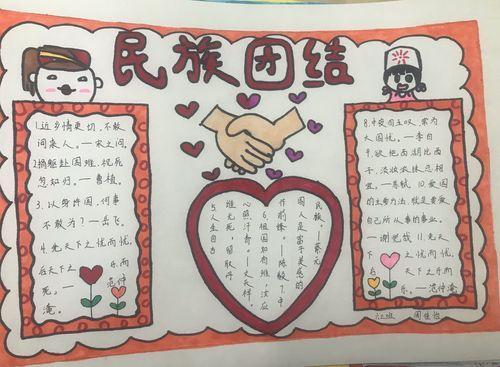 民族团结
1.近乡情更切,不敢
问来人。一宋之问。
2.捐躯赴国难,视死
忽如归。一曹植。
3.以身许国,何事
不敢为?一岳飞。
4.先天下之忧而忧,
后天下之乐而
一范仲
淹。
5.人生自古
谁无死,留取丹
心照汗青。一文天祥。
6.祖国如有难,汝应
作前锋。一陈毅7.中
国人是富于美感的
民族。一蔡元
8.中夜四五叹,常为
大国忧。一李白
9.欲把西湖比西
子,淡妆浓抹总相
宜。一苏轼10.爱国
的主要方法,就是要爱
自己所从事的事业。
一谢觉哉11.先天
下之忧而忧,
后天下之乐而
乐。一范仲淹。